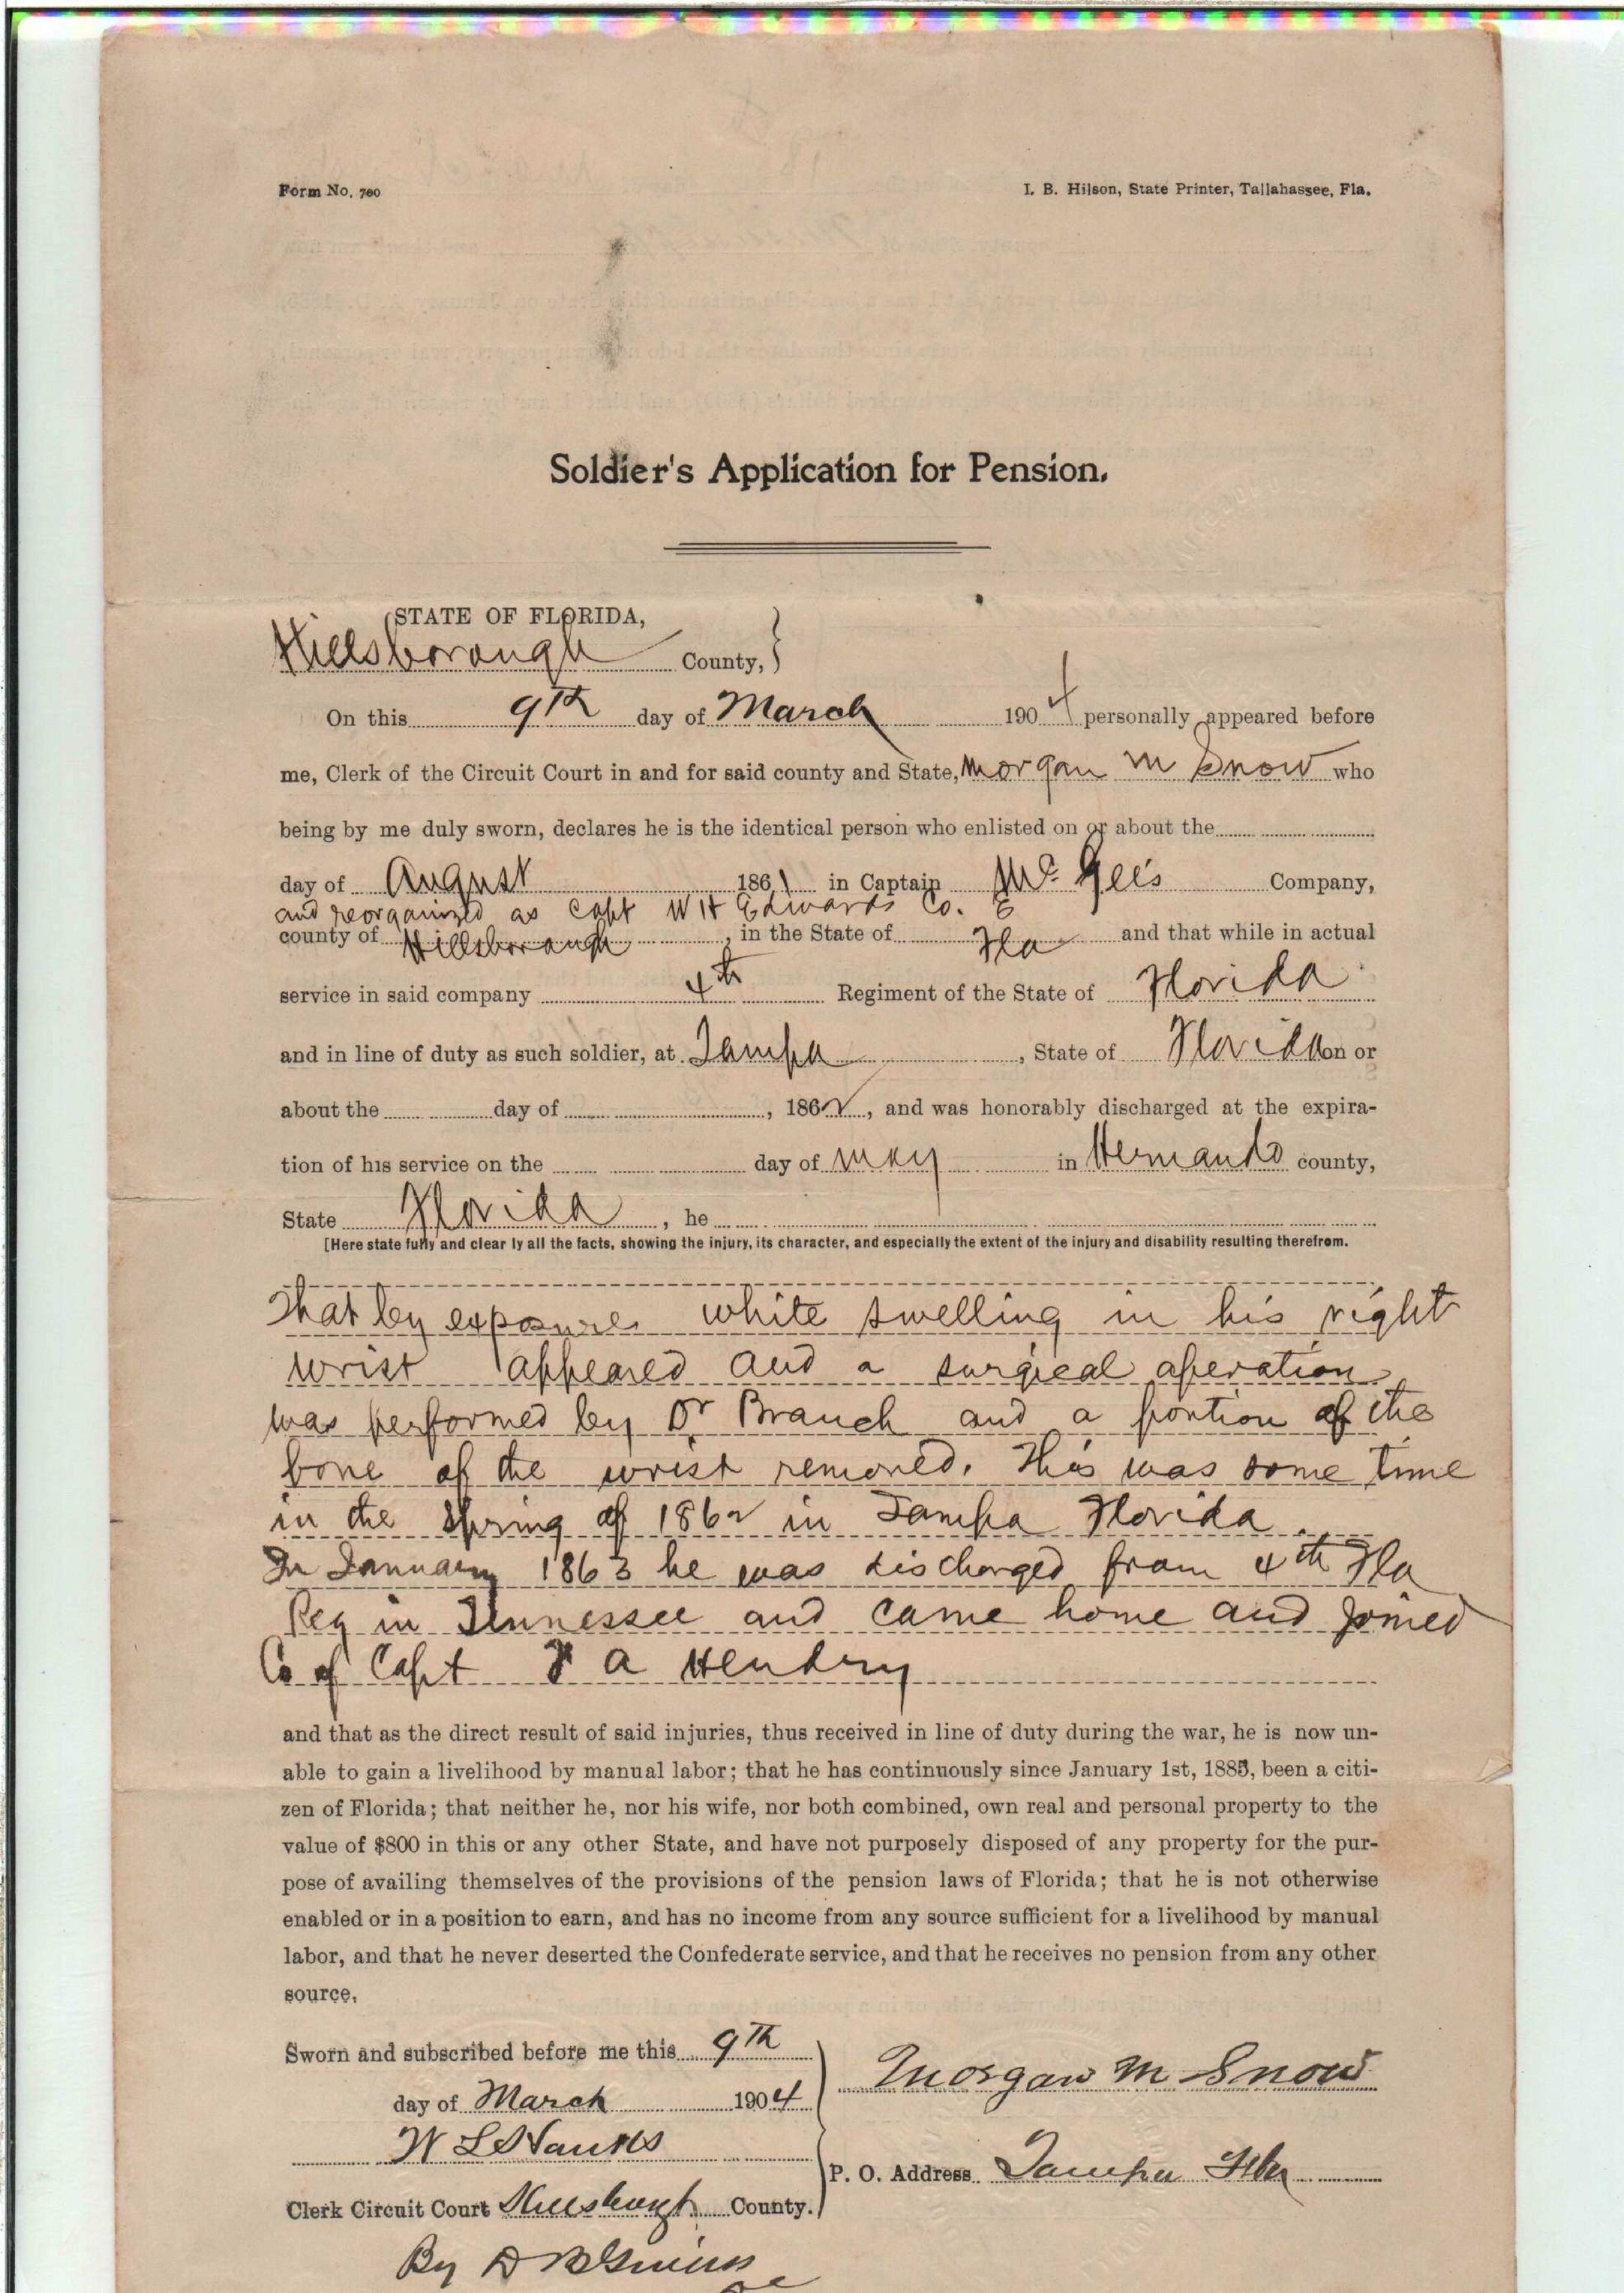 Form No. 780
I. B. Hilson, State Printer, Tallahassee, Fla.
Soldier's Application for Pension.
STATE OF FLORIDA,
Hillsborough County,
On this 9th day of March 1904 personally appeared before
me, Clerk of the Circuit Court in and for said county and State, Morgan M Snow who
being by me duly sworn, declares he is the identical person who enlisted on or about the
day of August 1861 in Captain McGee's Company,
and reorganized as Capt W H Edwards Co. E
county of Hillsborough, in the State of Fla and that while in actual
service in said company 4th Regiment of the State of Florida
and in line of duty as such soldier, at Tampa, State of Florida on or
about the day of , 1862, and was honorably discharged at the expira-
tion of his service on the day of May in Hernando county,
State Florida, he
[Here state fully and clearly all the facts, showing the injury, its character, and especially the extent of the injury and disability resulting therefrom.
That by exposure white swelling in his right
wrist appeared and a surgical operation
was performed by Dr Branch and a portion of the
bone of the wrist removed. This was some time
in the Spring of 1862 in Tampa Florida.
In January 1863 he was discharged from 4th Fla
Reg in Tennessee and came home and joined
Co of Capt F A Hendry
and that as the direct result of said injuries, thus received in line of duty during the war, he is now un-
able to gain a livelihood by manual labor; that he has continuously since January 1st, 1885, been a citi-
zen of Florida; that neither he, nor his wife, nor both combined, own real and personal property to the
value of $800 in this or any other State, and have not purposely disposed of any property for the pur-
pose of availing themselves of the provisions of the pension laws of Florida; that he is not otherwise
enabled or in a position to earn, and has no income from any source sufficient for a livelihood by manual
labor, and that he never deserted the Confederate service, and that he receives no pension from any other
source.
Sworn and subscribed before me this 9th
day of March 1904
Morgan M Snow
W L Hanks
P. O. Address Tampa Fla
Clerk Circuit Court Hillsborough County.
By D B